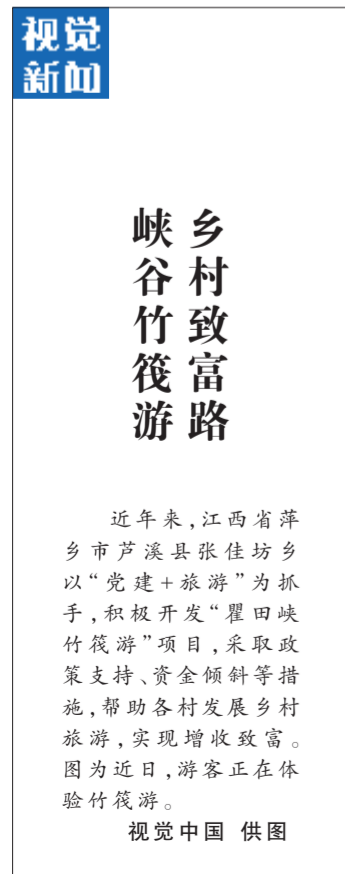 视觉
新闻
峡谷竹筏游
乡村致富路
近年来,江西省萍
乡市芦溪县张佳坊乡
以“党建+旅游”为抓
手,积极开发“瞿田峡
竹筏游”项目,采取政
策支持、资金倾斜等措
施,帮助各村发展乡村
旅游,实现增收致富。
图为近日,游客正在体
验竹筏游。
视觉中国 供图